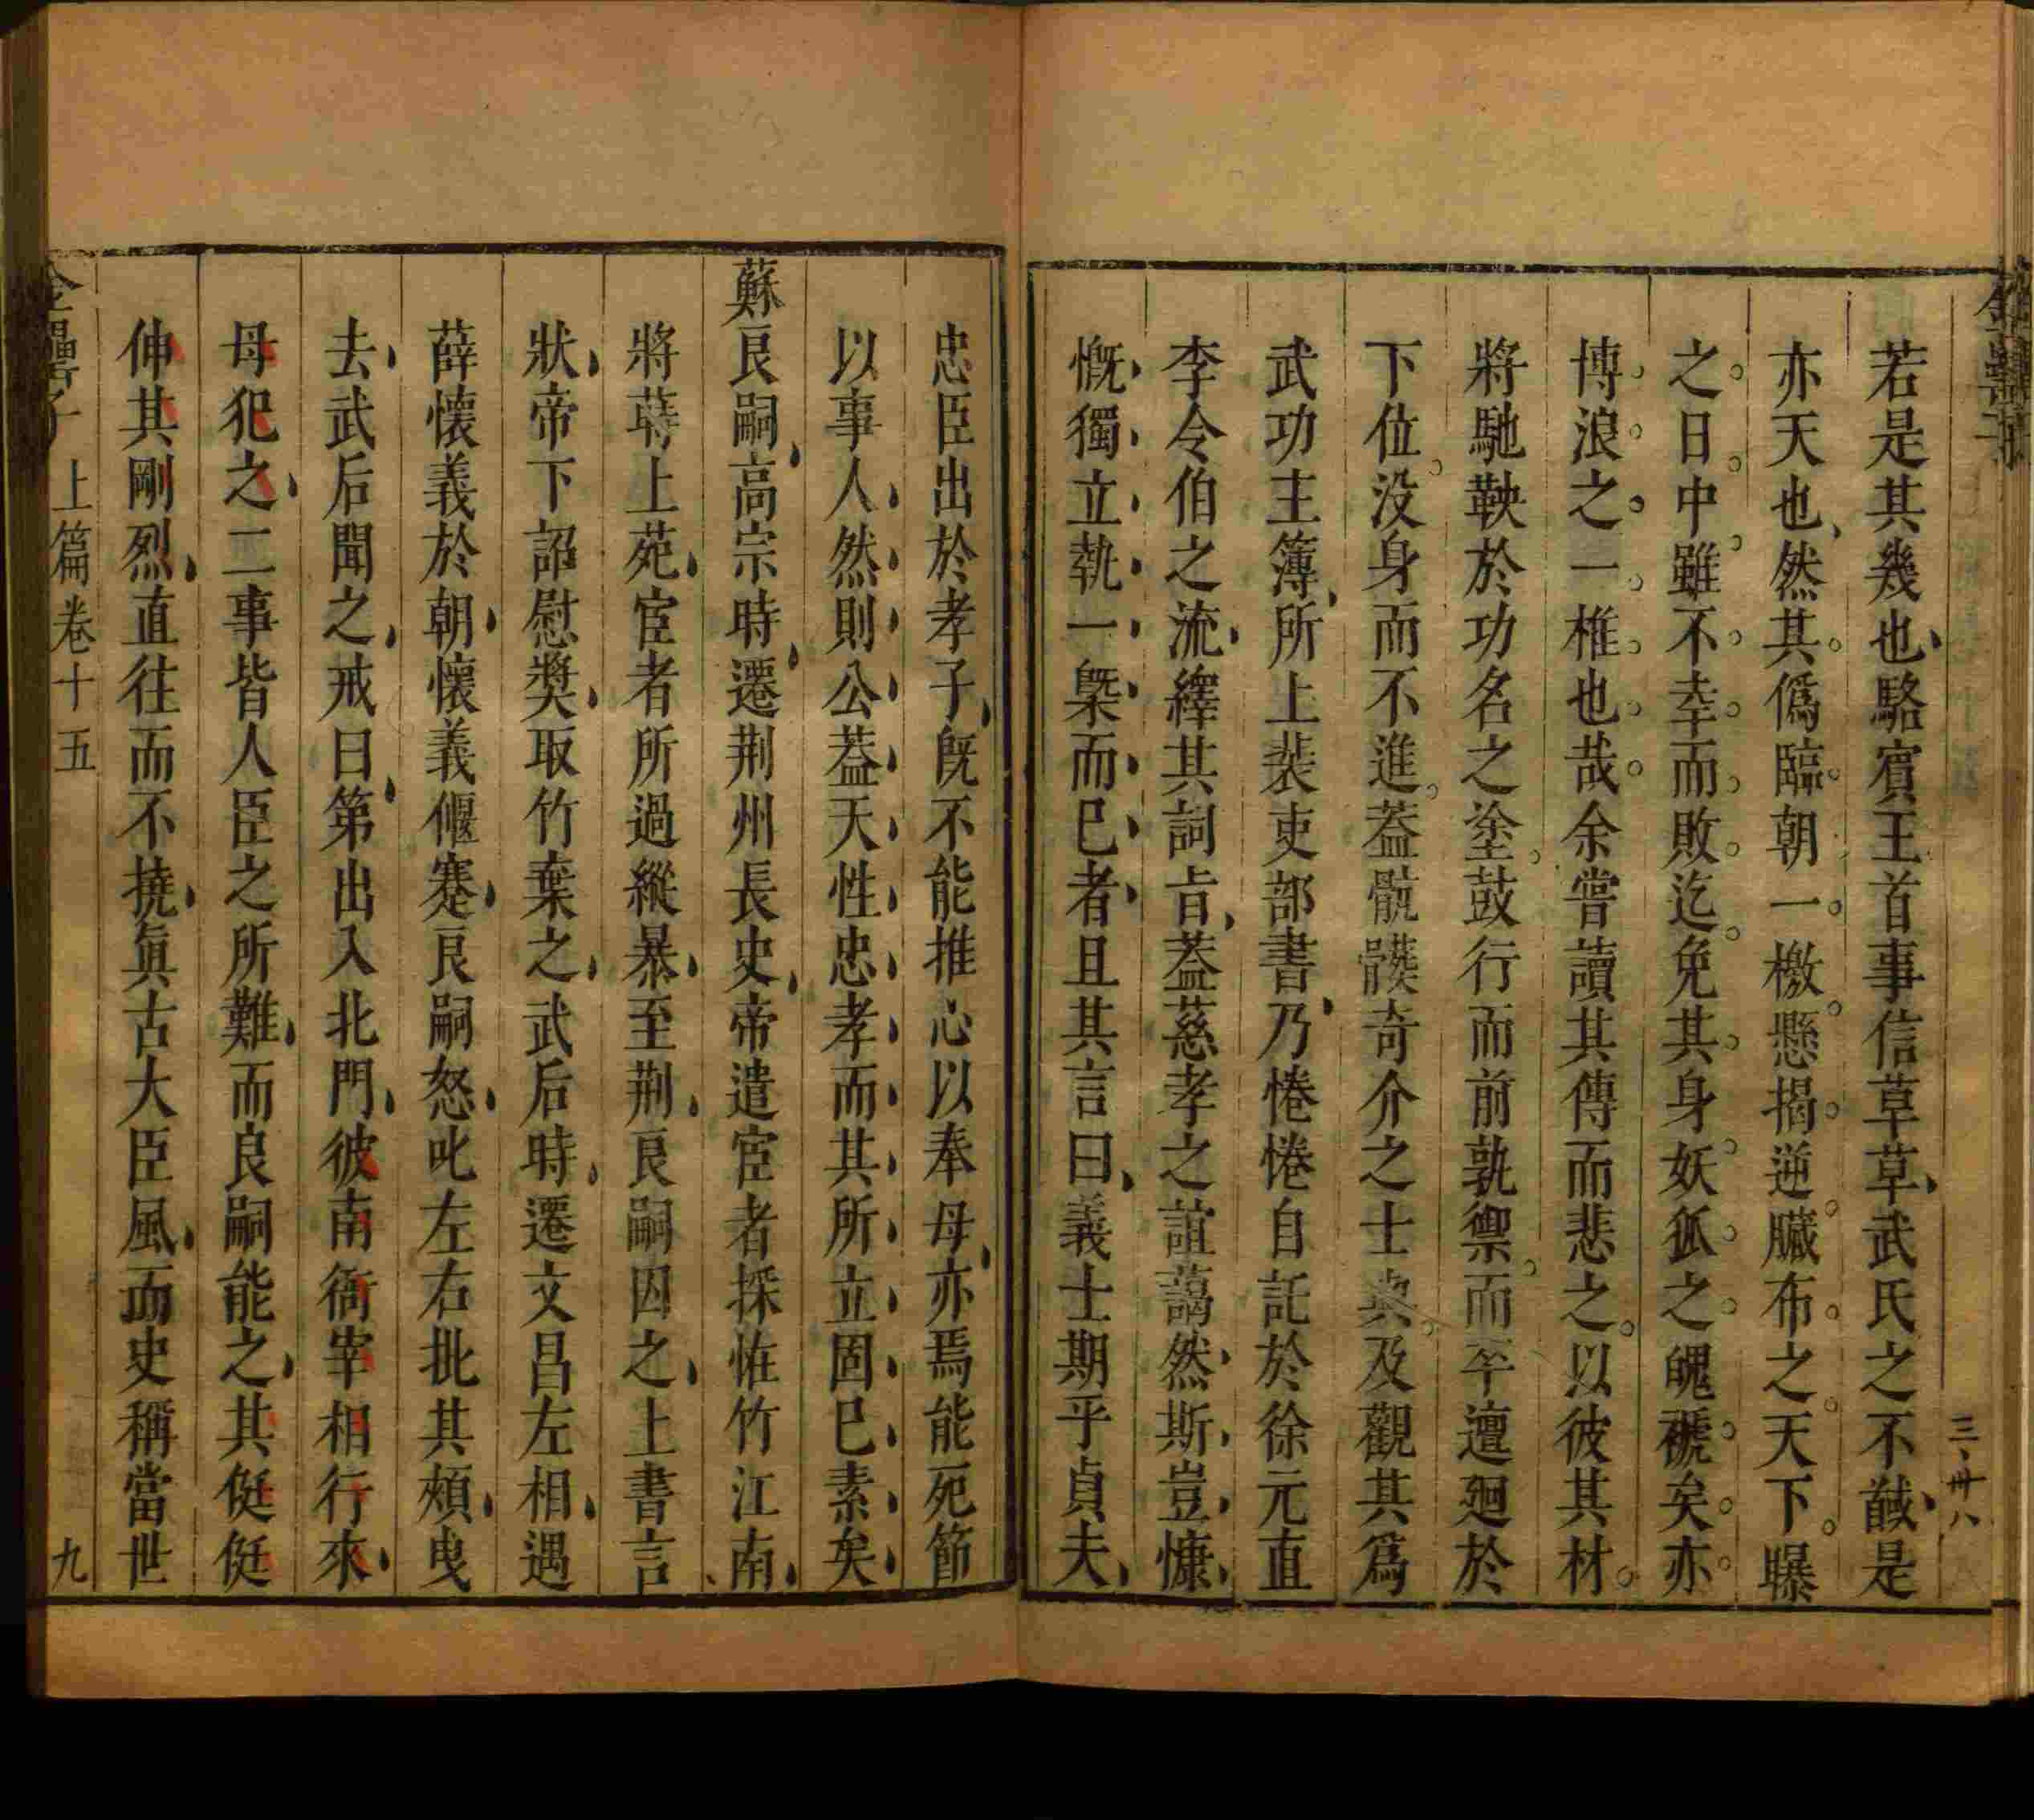 三卅八
若是其幾也駱賓王首事信草草武氏之不馘是
亦天也然其僞臨朝一檄懸揭逆臟布之天下曝
之日中雖不幸而敗迄免其身妖狐之魄褫矣亦
博浪之一椎也哉余嘗讀其傳而悲之以彼其材
將馳鞅於功名之塗鼓行而前孰禦而卒邅廻於
下位没身而不進蓋骯髒奇介之士與及觀其爲
武功主簿所上裴吏部書乃惓惓自託於徐元直
李令伯之流繹其詞旨蓋慈孝之誼藹然斯豈慷
慨獨立執一槩而已者且其言曰義士期乎貞夫
忠臣出於孝子既不能推心以奉母亦焉能死節
以事人然則公葢天性忠孝而其所立固已素矣
蘇良嗣高宗時遷荆州長史帝遣宦者採恠竹江南
將蒔上苑宦者所過縱暴至荆良嗣囚之上書言
狀帝下詔慰奬取竹棄之武后時遷文昌左相遇
薛懷義於朝懷義偃蹇良嗣怒叱左右批其頰曳
去武后聞之戒曰第出入北門彼南衙宰相行來
毋犯之二事皆人臣之所難而良嗣能之其侹侹
伸其剛烈直往而不撓眞古大臣風而史稱當世
金罍子 上篇卷十五 九